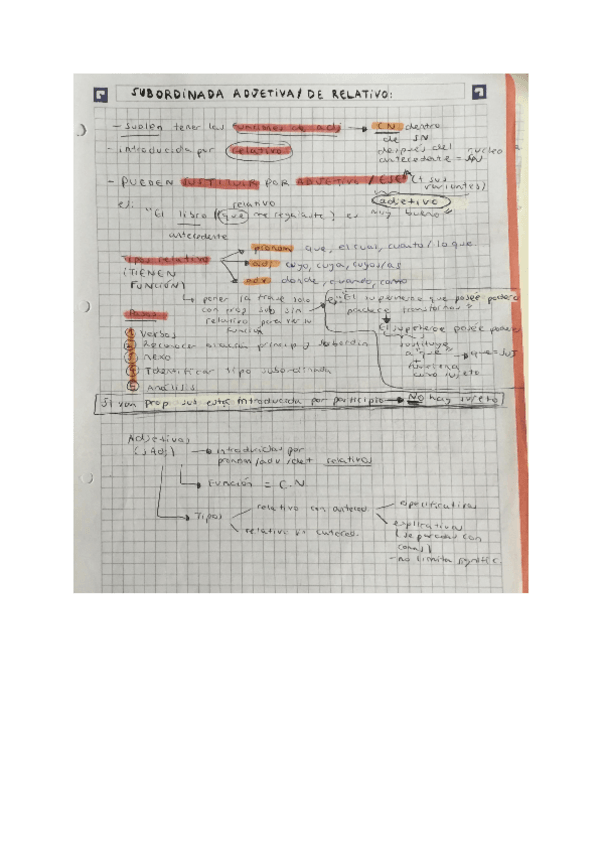 SUBORDINADA ADJETIVA/ DE RELATIVO:
- Suelen tener las funciones de adj → CN dentro de SN
- introducida por relativo
después del núcleo
antecedente = SN
- PUEDEN SUSTITUIR POR ADJETIVO / ESE (+ sus variantes)
relativo
adjetivo
ej: "El libro (que me regalaste) es muy bueno"
antecedente
Tipos relativo
(TIENEN FUNCIÓN)
pronom → que, el cual, cuanto/ la que.
adj → cuyo, cuya, cuyos/as
adv → donde, cuando, como
↳ poner la frase solo
con prop sub sin
relativo para ver su
función
ej: "El superheroe que posee poderes
El superheroe posee poderes
sustituye
a "que" → que = SUJ
funciona
como sujeto
Pasos
1 Verbos
2 Reconocer oración princip y subordin
3 Nexo
4 Identificar tipo subordinada
5 Análisis
Si van prop sub estás introducida por participio → NO hay sujeto
Adjetivas
(sAdj) → introducidas por
pronom/adv/det relativos
↳ Función = C.N
↳ Tipos
relativo con anteced.
especificativas
explicativas
(separadas con
comas)
- no limita signific
relativo sin anteced.